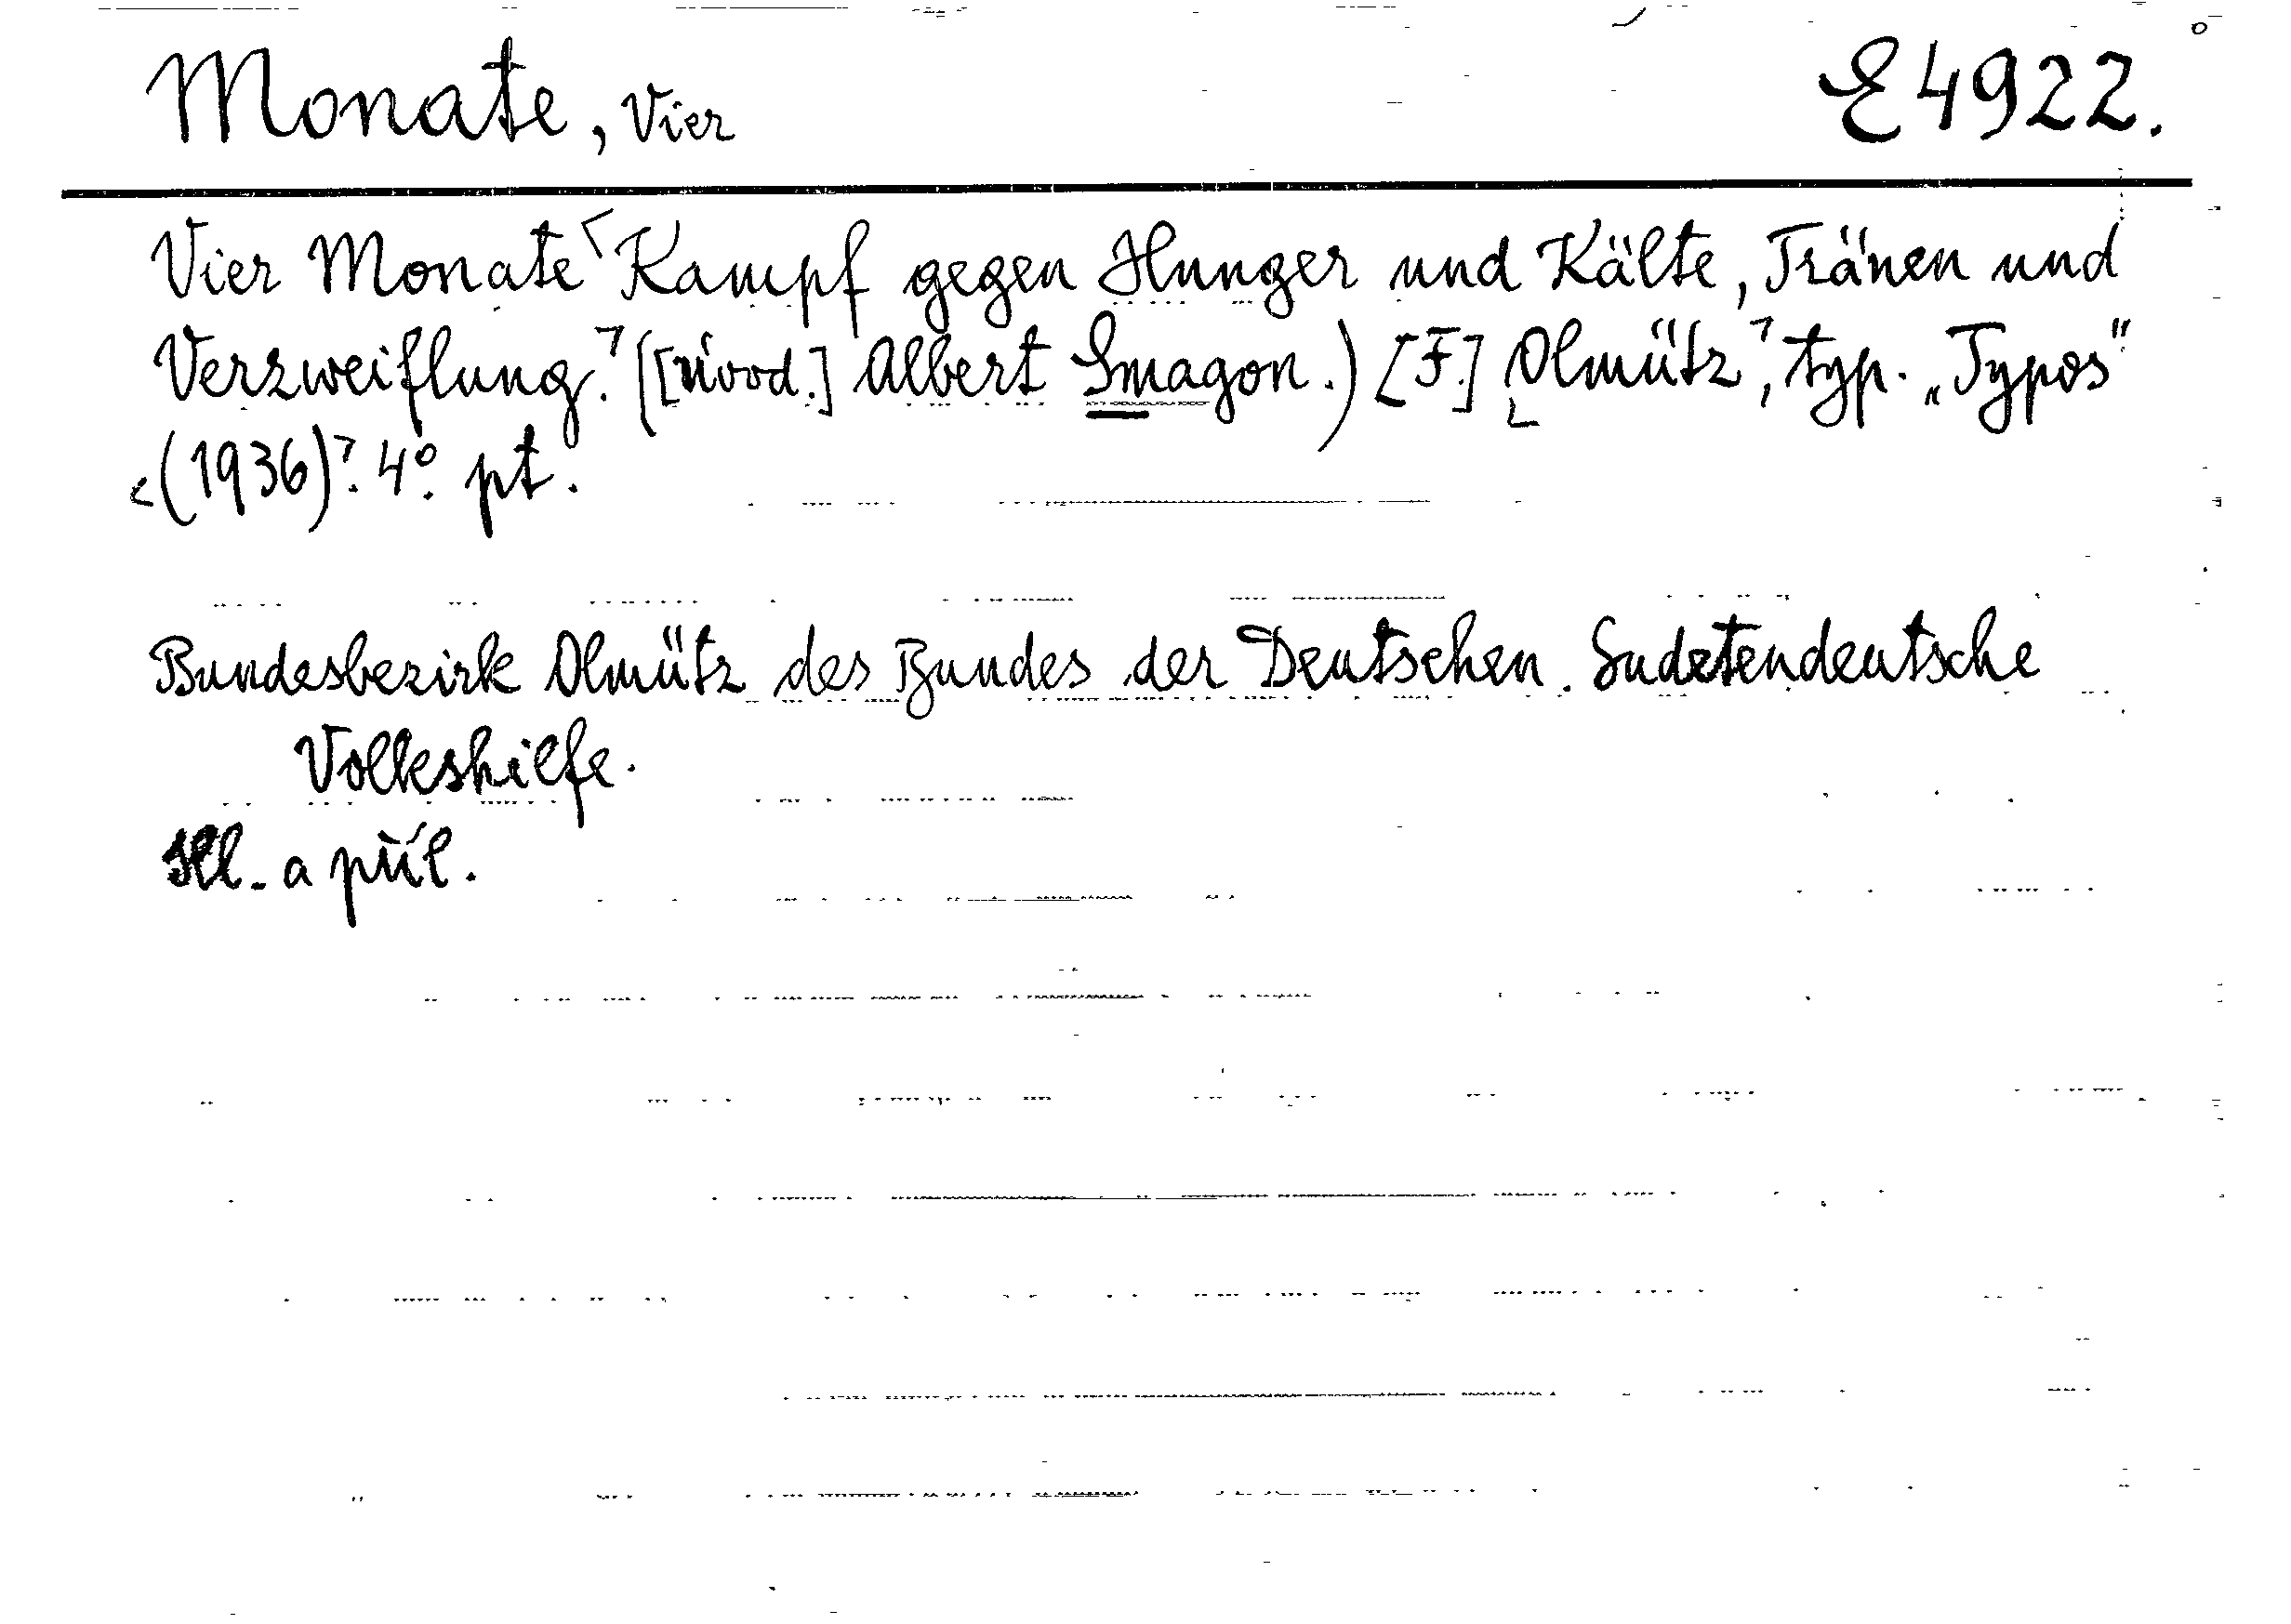 Monate, Vier E 4922.
Vier Monate ⌜Kampf gegen Hunger und Kälte, Tränen und
Verzweiflung.⌝ ([Úvod.] Albert Smagon.) [F.] ⌞Olmütz⌝, typ. „Typos“
<(1936)⌝. 4°. pt.
Bundesbezirk Olmütz des Bundes der Deutschen. Sudetendeutsche
Volkshilfe.
Ill. a příl.